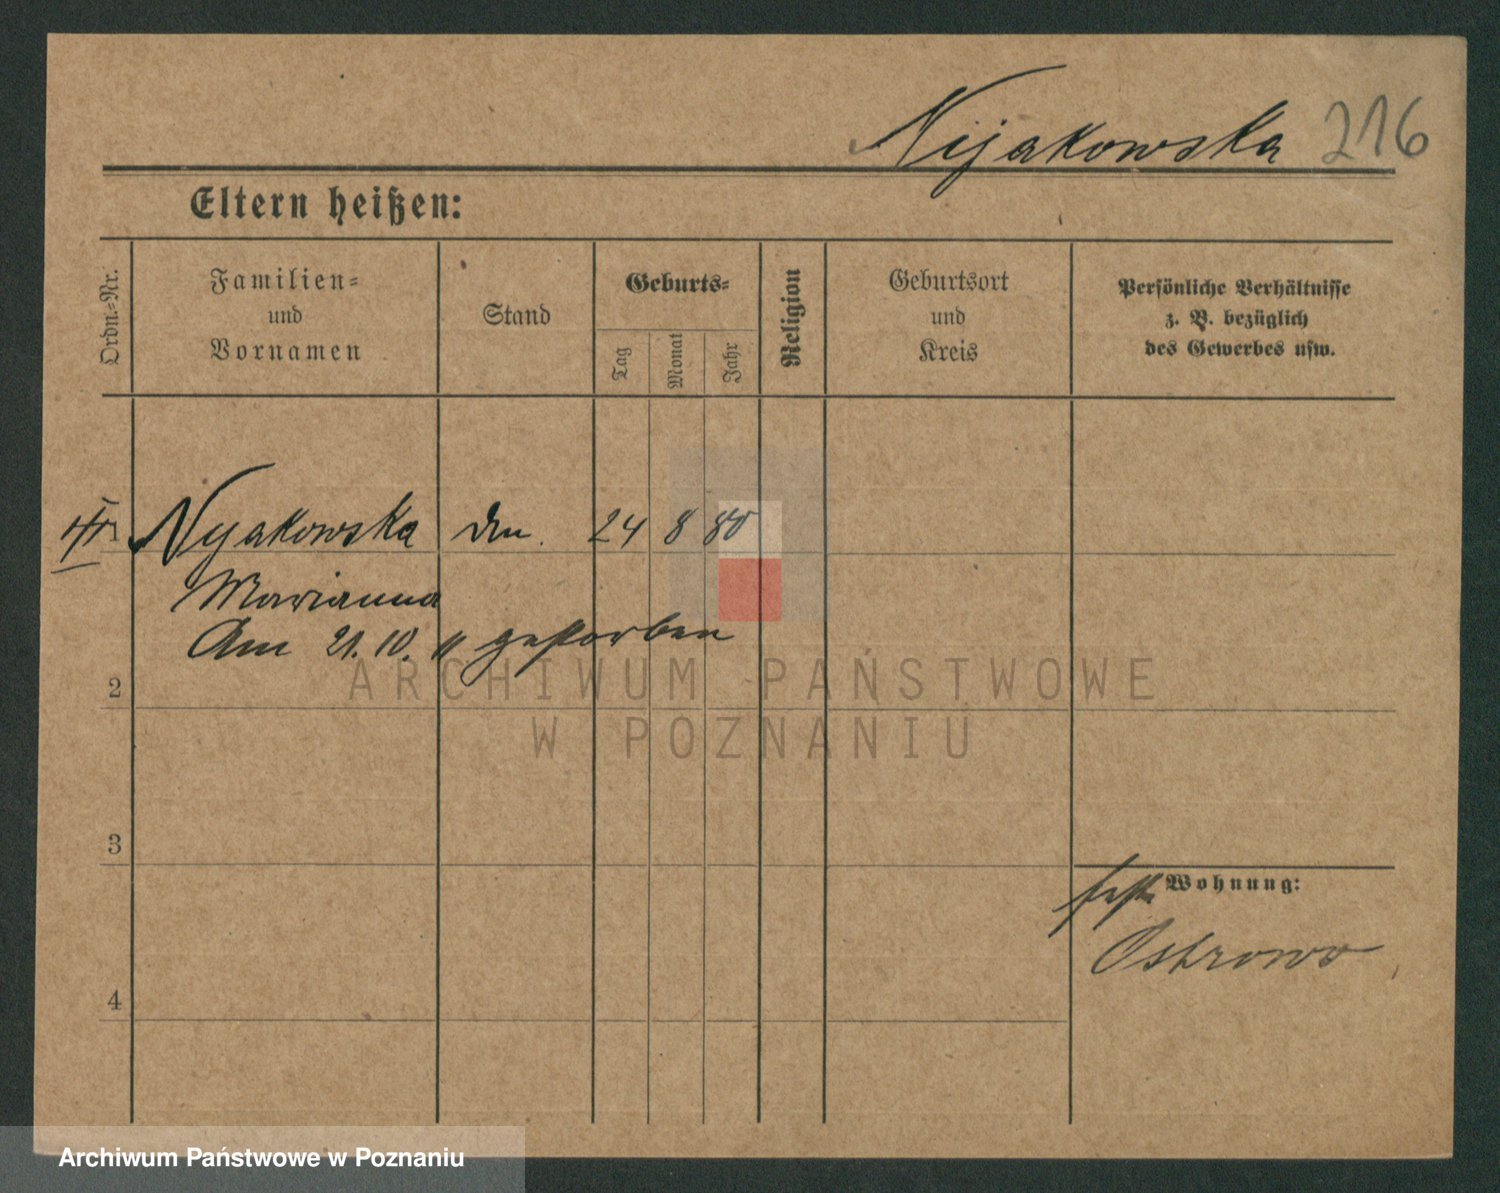 Nijakowska 216
Eltern heißen:
Ordn.-Nr.
Familien-
und
Vornamen
Stand
Geburts-
Tag
Monat
Jahr
Religion
Geburtsort
und
Kreis
Persönliche Verhältnisse
z. B. bezüglich
des Gewerbes usw.
1 Nijakowska 24 8 80
Marianna
Am 21. 10. 11 gestorben
2
3
4
Wohnung:
Ostrowo
ARCHIWUM PAŃSTWOWE
W POZNANIU
Archiwum Państwowe w Poznaniu